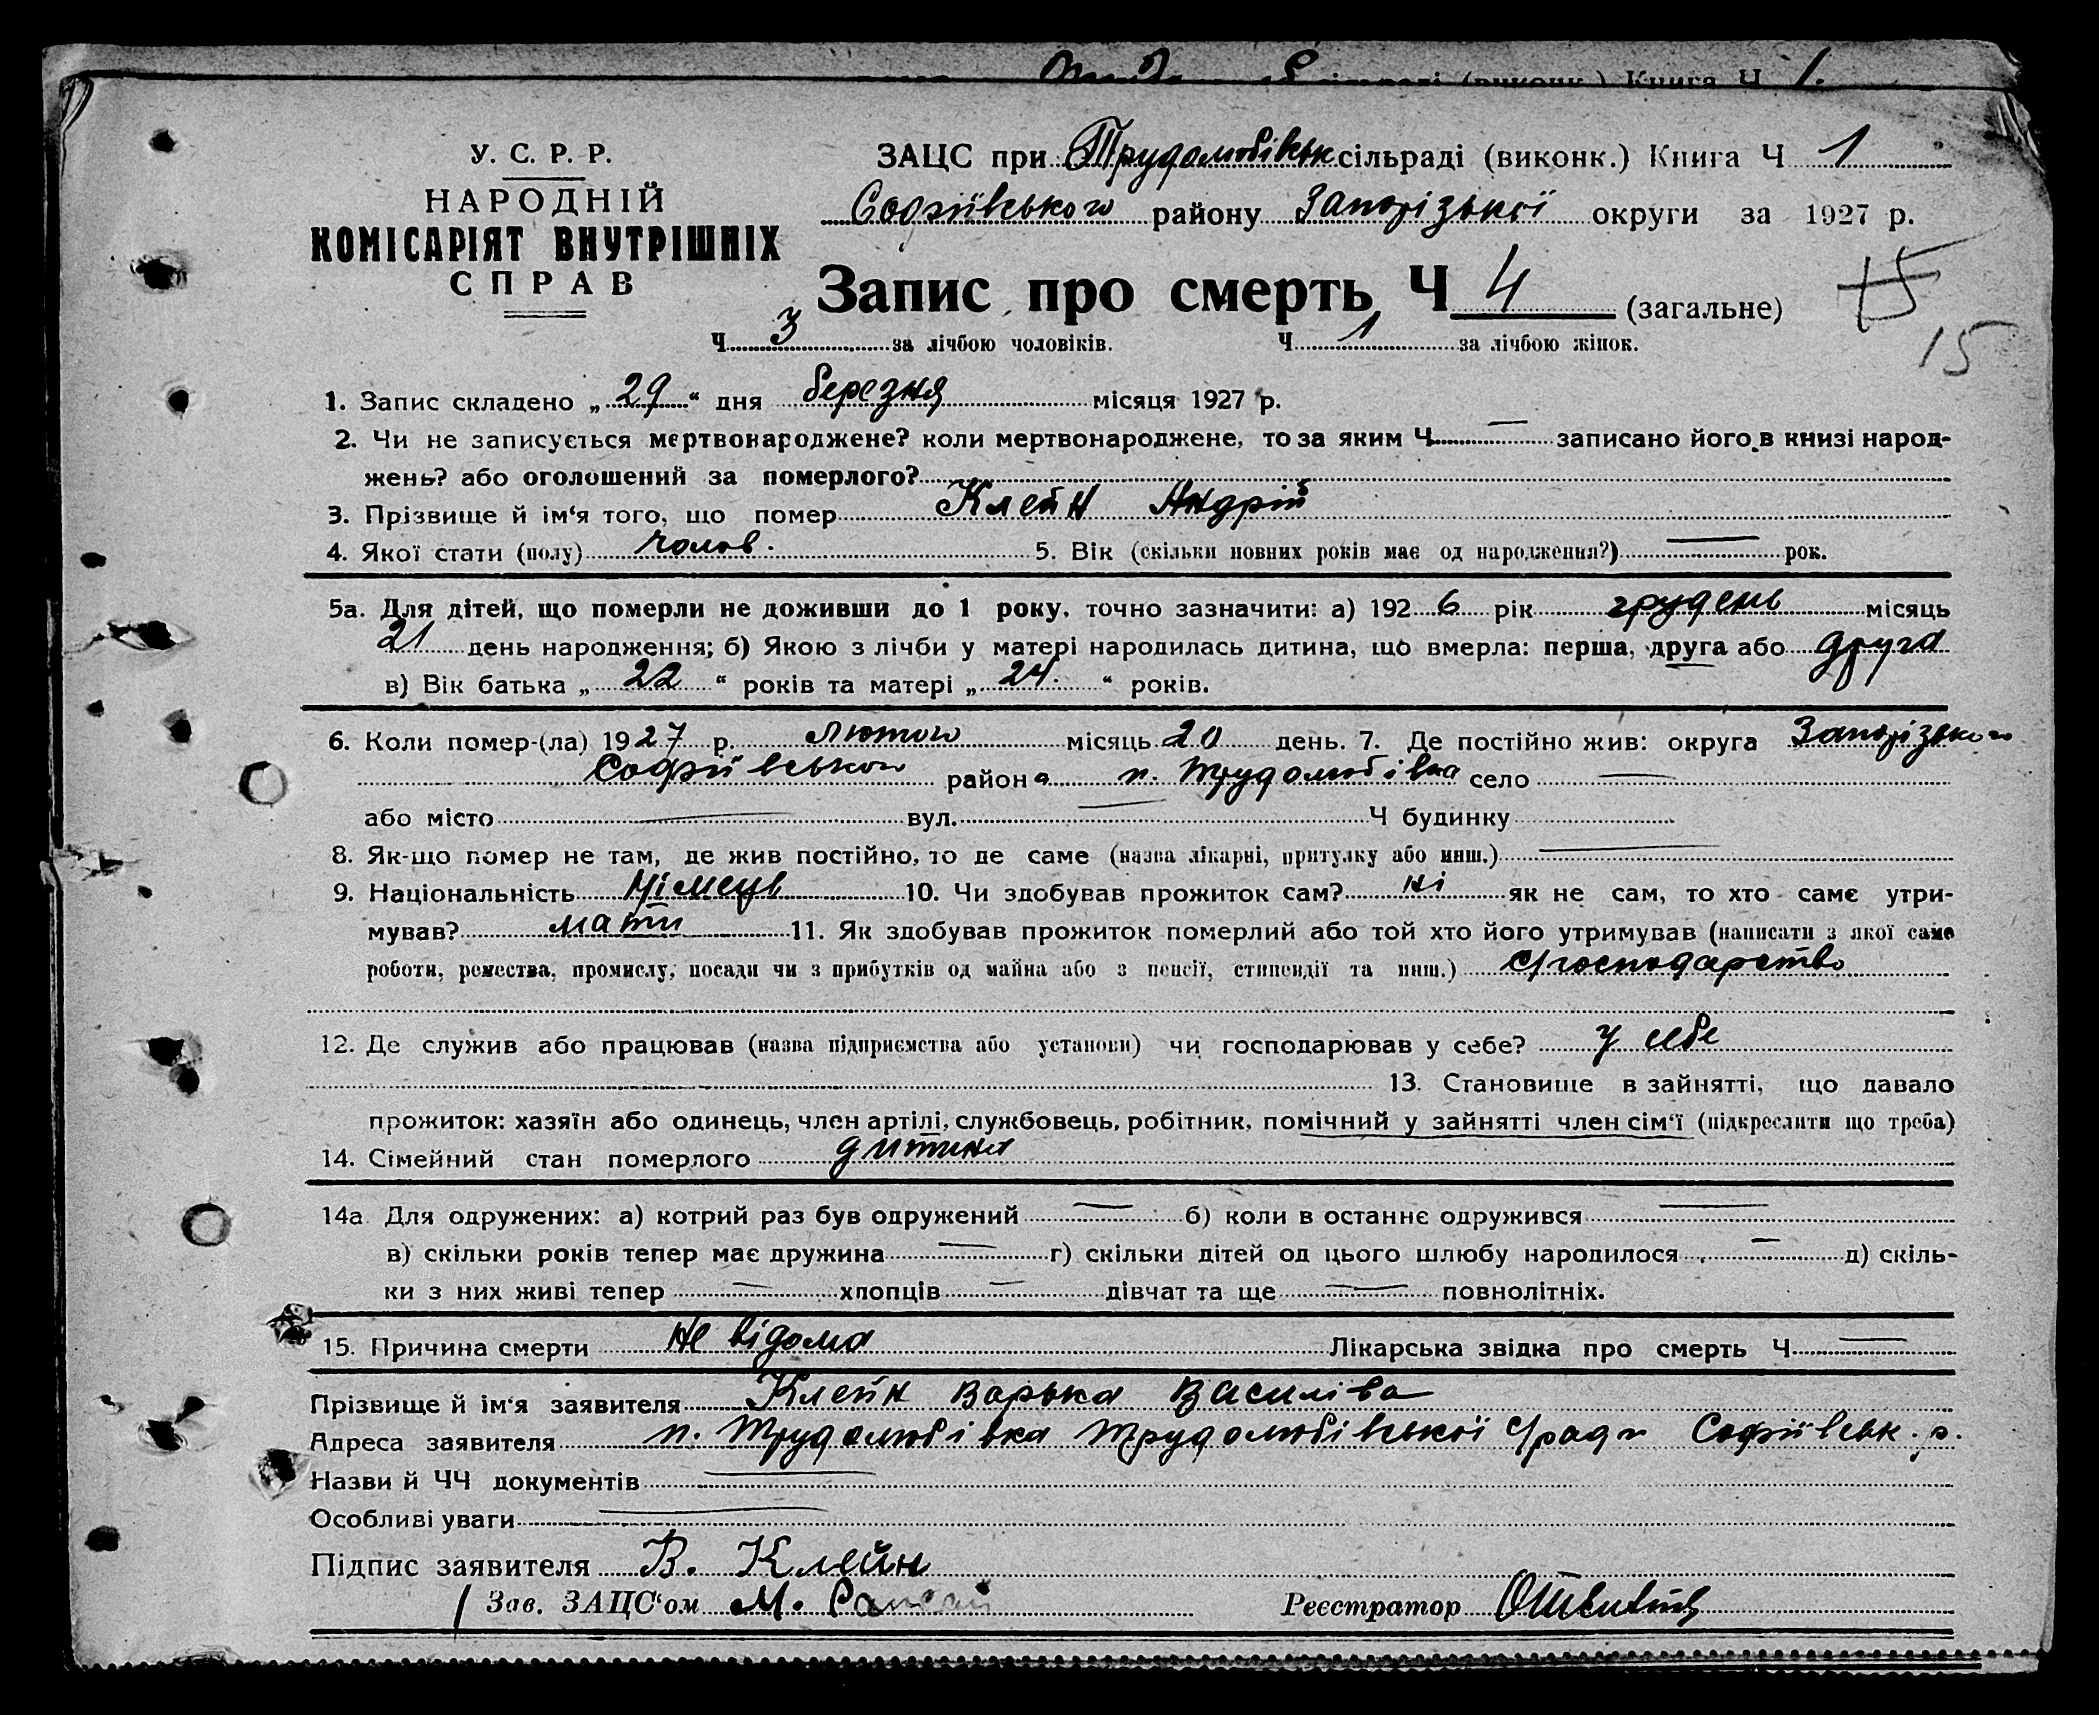 (виконк.) Книга Ч 1.
У. С. Р. Р.
НАРОДНІЙ
КОМІСАРІЯТ ВНУТРІШНІХ
СПРАВ
ЗАЦС при Трудолюбівськ сільраді (виконк.) Книга Ч 1
Софіївського району Запорізької округи за 1927 р.
Запис про смерть Ч 4 (загальне)
15
15
Ч 3 за лічбою чоловіків. Ч 1 за лічбою жінок.
1. Запис складено „ 29 “ дня березня місяця 1927 р.
2. Чи не записується мертвонароджене? коли мертвонароджене, то за яким Ч — записано його в книзі народ-
жень? або оголошений за померлого?
3. Прізвище й ім‘я того, що помер Клейн Андрій
4. Якої стати (полу) чолов. 5. Вік (скільки повних років має од народження?) — рок.
5а. Для дітей, що померли не доживши до 1 року, точно зазначити: а) 1926 рік грудень місяць
21 день народження; б) Якою з лічби у матері народилась дитина, що вмерла: перша, друга або друга
в) Вік батька „ 22 “ років та матері „ 24. “ років.
6. Коли помер-(ла) 1927 р. лютого місяць 20 день. 7. Де постійно жив: округа Запорізького
Софіївського района п. Трудолюбівка село —
або місто — вул. — Ч будинку
8. Як-що помер не там, де жив постійно, то де саме (назва лікарні, притулку або инш.) —
9. Національність Німець 10. Чи здобував прожиток сам? ні як не сам, то хто саме утри-
мував? мати 11. Як здобував прожиток померлий або той хто його утримував (написати з якої саме
роботи, ремества, промислу, посади чи з прибутків од майна або з пенсії, стипендії та инш.) С/господарство
12. Де служив або працював (назва підприємства або установи) чи господарював у себе? у себе
13. Становище в зайнятті, що давало
прожиток: хазяїн або одинець, член артілі, службовець, робітник, помічний у зайнятті член сім‘ї (підкреслити що треба)
14. Сімейний стан померлого дитина
14а Для одружених: а) котрий раз був одружений — б) коли в останнє одружився —
в) скільки років тепер має дружина — г) скільки дітей од цього шлюбу народилося — д) скіль-
ки з них живі тепер — хлопців — дівчат та ще — повнолітніх.
15. Причина смерти не відома Лікарська звідка про смерть Ч —
Прізвище й ім‘я заявителя Клейн Варька Василіва
Адреса заявителя п. Трудолюбівка Трудолюбівської С/ради Софіївськ. р.
Назви й ЧЧ документів —
Особливі уваги —
Підпис заявителя В. Клейн
Зав. ЗАЦС‘ом М.
Реєстратор